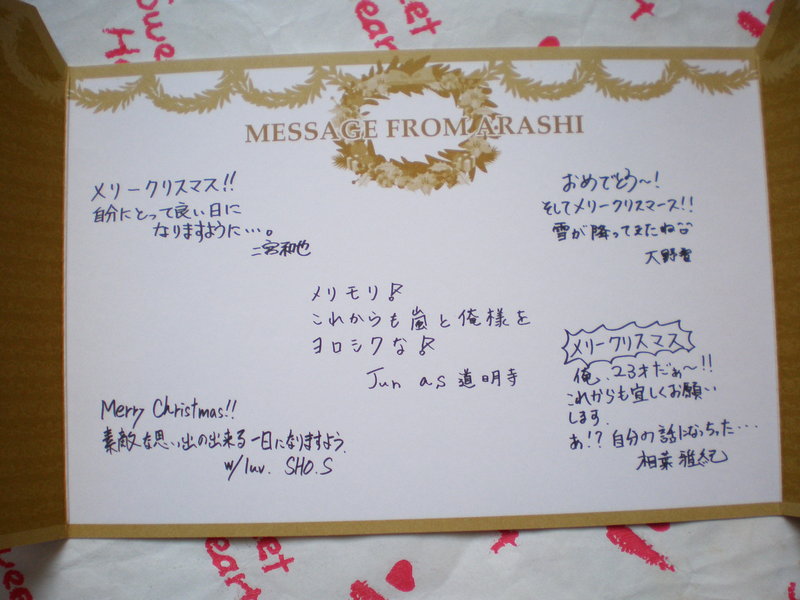 MESSAGE FROM ARASHI
メリークリスマス!!
自分にとって良い日に
なりますように…。
二宮和也
おめでとう〜!
そしてメリークリスマース!!
雪が降ってきたね
大野智
メリモリ♪
これからも嵐と俺様を
ヨロシクな♪
Jun as 道明寺
メリークリスマス
俺、23才だぁ〜!!
これからも宜しくお願い
します.
あ!?自分の話になっちった…
相葉雅紀
Merry Christmas!!
素敵な思い出の出来る一日になりますよう.
w/luv. SHO.S
Sweet
Heart
Sweet
Heart